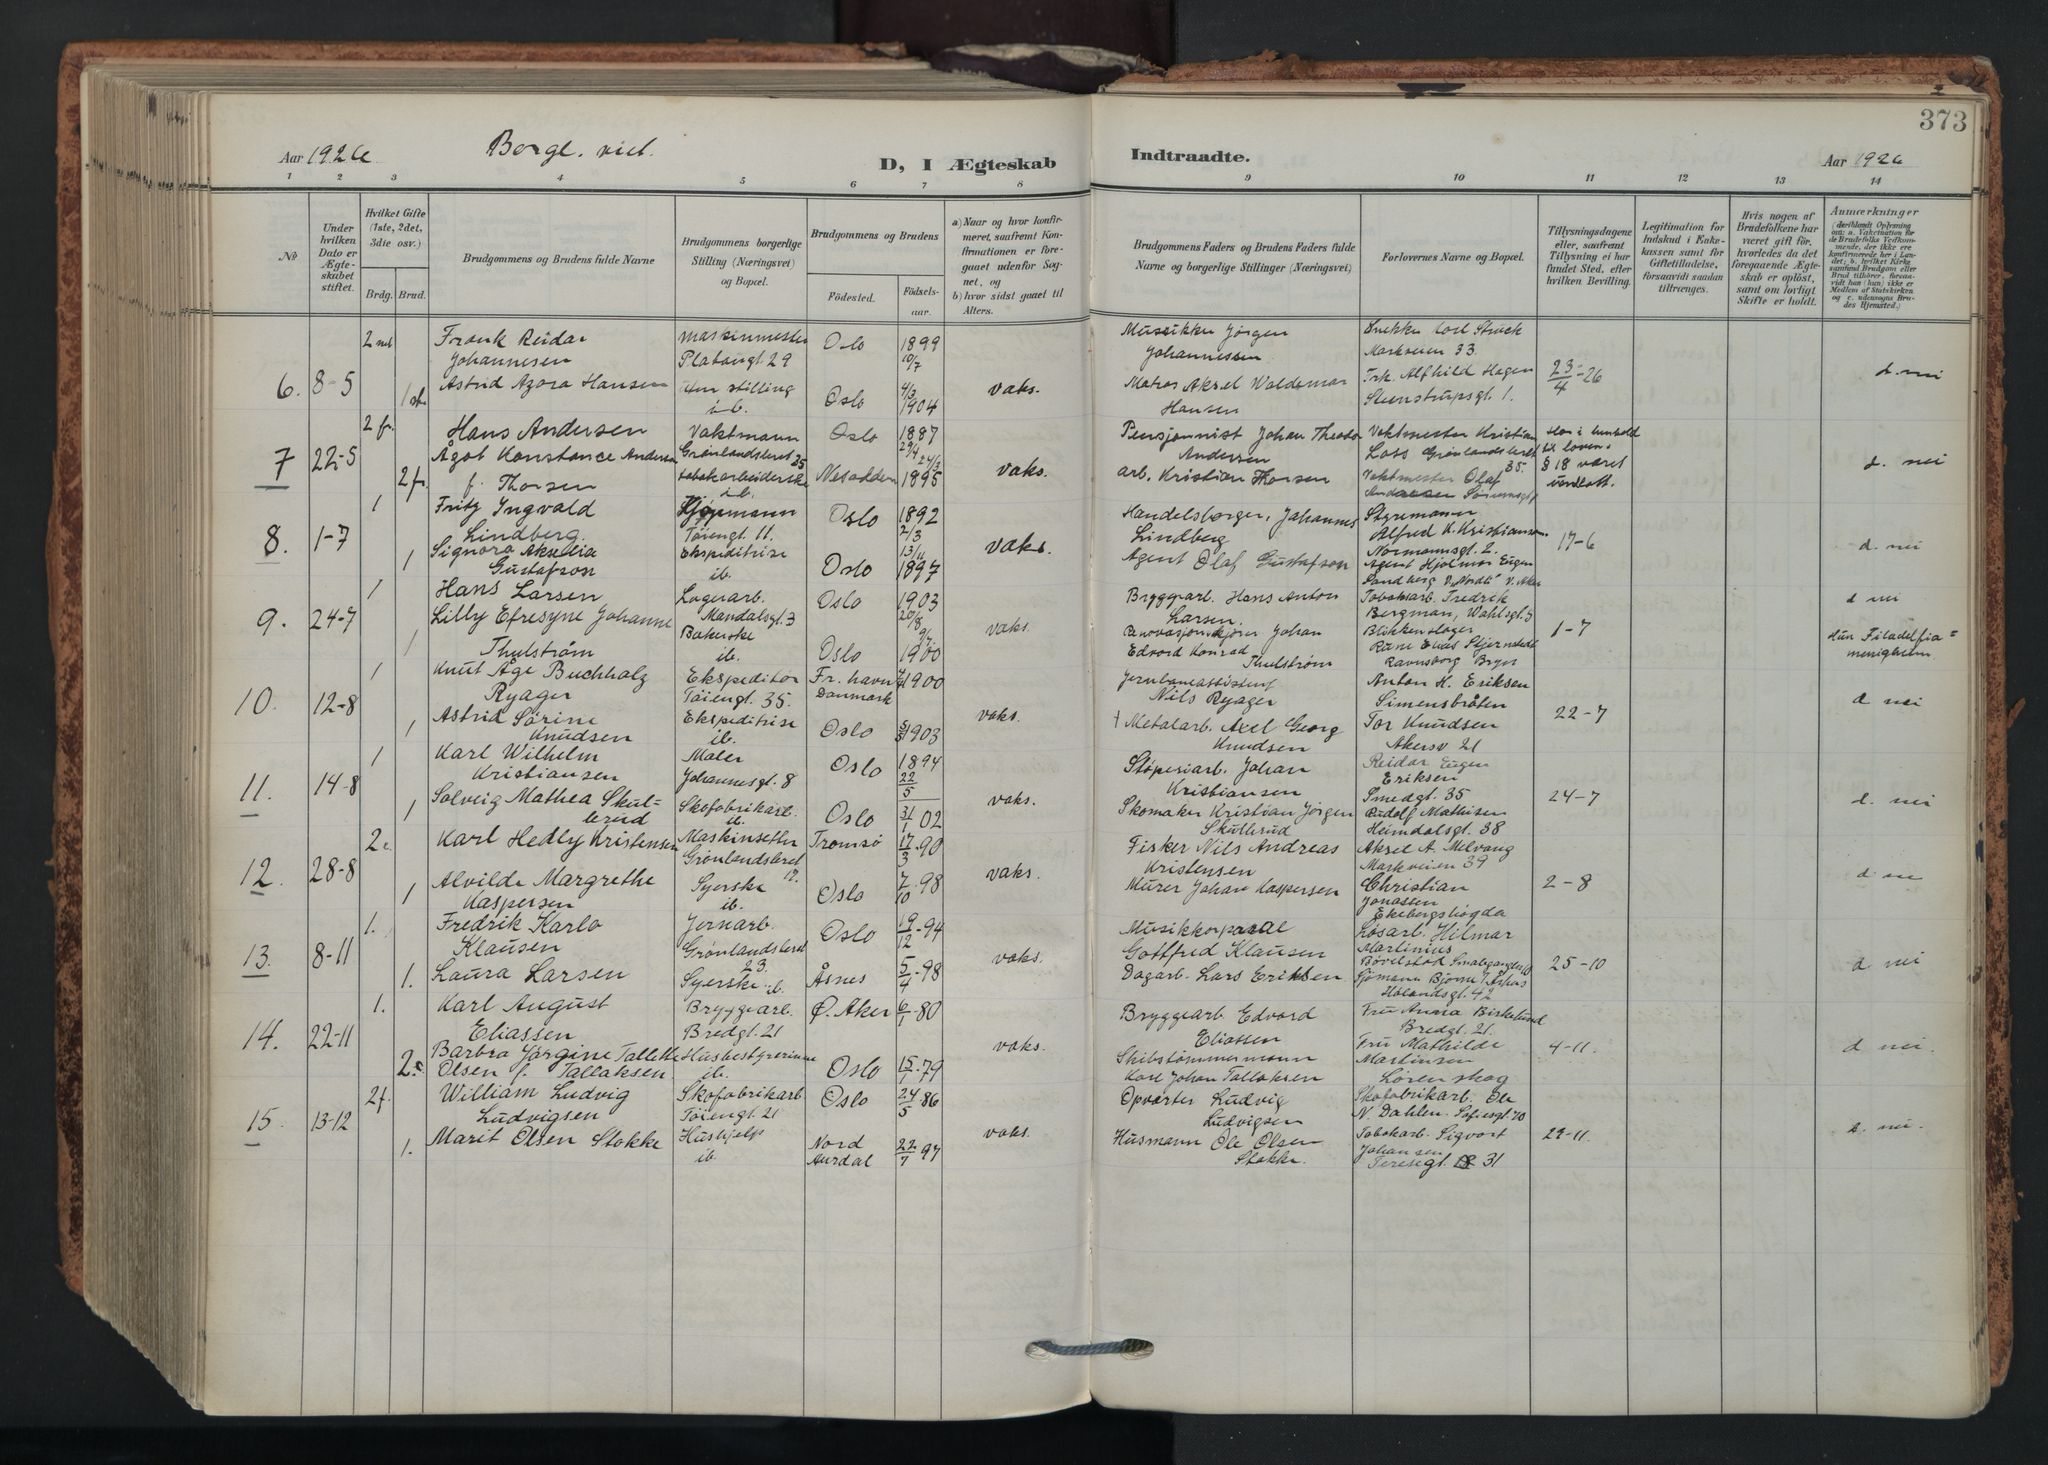 373
Aar 1926 Borgl. viet. D, I Ægteskab Indtraadte. Aar 1926
1 2 3 4 5 6 7 8 9 10 11 12 13 14
No
Under hvilken Dato er Ægteskabet stiftet.
Hvilket Gifte (1ste, 2det, 3die osv.)
Brdg. Brud.
Brudgommens og Brudens fulde Navne
Brudgommens borgerlige Stilling (Næringsvei) og Bopæl.
Brudgommens og Brudens
Fødested. Fødselsaar.
a) Naar og hvor konfirmeret, saafremt Konfirmationen er foregaaet udenfor Sognet, og
b) hvor sidst gaaet til Alters.
Brudgommens Faders og Brudens Faders fulde Navne og borgerlige Stillinger (Næringsvei)
Forlovernes Navne og Bopæl.
Tillysningsdagene eller, saafremt Tillysning ei har fundet Sted, efter hvilken Bevilling.
Legitimation for Indskud i Enkekassen samt for Giftetilladelse, forsaavidt saadan tiltrænges.
Hvis nogen af Brudefolkene har været gift før, hvorledes da det foregaaende Ægteskab er opløst, samt om lovligt Skifte er holdt.
Anmærkninger
(deriblandt Oplysning om: a. Vakcination for de Brudefolks Vedkommende, der ikke ere konfirmerede her i Landet; b. hvilket Kirkesamfund Brudgom eller Brud tilhører, forsaavidt han (hun) ikke er Medlem af Statskirken og c. udensogns Brudes Hjemsted.)
6. 8-5
Frank Reidar Johannesen maskinmester Platousgt 29 Oslo 1899 10/7
Musikker Jørgen Johannessen Snekker Markveien 33.
1ste Astrid Azora Hansen uten stilling ib. Oslo 4/3 1904 vaks.
Matros Aksel Waldemar Hansen Frk. Alfhild Hagen Steenstrupsgt 1. 23/4-26 d. nei
7 22-5
2 fr. Hans Andersen Vaktmann Grønlandsleret 35 Oslo 1887 29/4
Pensjonnist Johan Theodor Andersen Vaktmester Kristian Grønlandsleret 35.
2 fr. Ågot Konstance Andersen f. Thorsen tobakarbeiderske ib. Nesodden 24/3 1895 vaks.
arb. Kristian Thorsen Vaktmester Olaf
har i henhold til lovens § 18 været d. nei
8. 1-7
1 Fritz Ingvald Lindberg. Kjøpmann Tøiengt 11. Oslo 1892 2/3
Handelsborger, Johannes Lindberg Styrmann Alfred K. Kristiansen Normannsgt. 2.
1 Signora Akselia Gustafson Ekspeditrise ib. Oslo 13/11 1897 vaks.
Agent Olaf Gustafson Agent Hjalmar Eugen Sandberg V. Aker 17-6 d. nei
9. 24-7
1 Hans Larsen Lagerarb. Mandalsgt. 3 Oslo 1903 20/8
Bryggearb. Hans Anton Larsen. Tobakarb. Fredrik Bergman, Wahlsgt. 3
1 Lilly Efresyne Johanne Thulstrøm Bakerske ib. Oslo 9/7. 1900 vaks.
Renovasjonskjører Johan Edvard Konrad Thulstrøm Blikkenslager Ravnsborg Bryn 1-7
d nei
Hun Filadelfiamenigheten
10. 12-8
1 Knut Åge Buchholz Ryager Ekspeditør Tøiengt. 35. Fr. havn Danmark 1900
Jernbaneassistent Nils Ryager Anton H. Eriksen Simensbråten
1 Astrid Sørine Knudsen Ekspeditrise ib. Oslo 1903 vaks.
+ Metalarb. Axel Georg Knudsen Tor Knudsen Akersv 21 22-7 d nei
11. 14-8
1 Karl Wilhelm Kristiansen Maler Johannesgt. 8 Oslo 1894 22/5
Støperiarb. Johan Kristiansen Reidar Eugen Eriksen Smedgt. 35
1 Solveig Mathea Skulberud Skofabrikarb. ib. Oslo 31/1 02 vaks.
Skomaker Kristian Jørgen Skulberud Rudolf Mathisen Heimdalsgt. 38 24-7 d. nei
12. 28-8
2. Karl Hedly Kristensen Maskinsetter Grønlandsleret 12. Tromsø 17/3-90
Fisker Nils Andreas Kristensen Aksel A. Melvang Markveien 39
1 Alvilde Margrethe Kaspersen Syerske ib. Oslo 7/10-98 vaks.
Murer Johan Kaspersen Christian Jonassen Ekebergshøgda 2-8 d nei
13. 8-11
1. Fredrik Karlo Klausen Jernarb. Grønlandsleret 23. Oslo 19/12-94
Musikkorporal Gottfred Klausen Løsarb. Hilmar Martinius Bøvelstad
1. Laura Larsen Syerske ib. Åsnes 5/4-98 vaks.
Dagarb. Lars Eriksen Sjømann Bjarne Hølandsgt. 42 25-10 d nei
14. 22-11
1. Karl August Eliassen Bryggearb. Bredgt. 21 Ø. Aker 6/1-80
Bryggearb Edvard Eliassen Fru Anna Birkelund Bredgt. 21.
2. Barbra Jørgine Tallette Olsen f. Tallaksen Husbestyrerinne ib. Oslo 15/1-79 vaks.
Skibstømmermann Karl Johan Tallaksen Fru Mathilde Martinsen Lørenskog 4-11. d nei.
15. 13-12
2f. William Ludvig Ludvigsen Skofabrikarb Tøiengt. 21 Oslo 24/5 86
Opvarter Ludvig Ludvigsen Skofabrikarb. Ole N. Dahlen. Sofiesgt. 70
1. Marit Olsen Stokke Hushjelp ib. Nord Aurdal 22/7 97 vaks.
Husmann Ole Olsen Stokke. Tobakarb. Sigvart Johansen Teresegt. 31 29-11. d. nei.